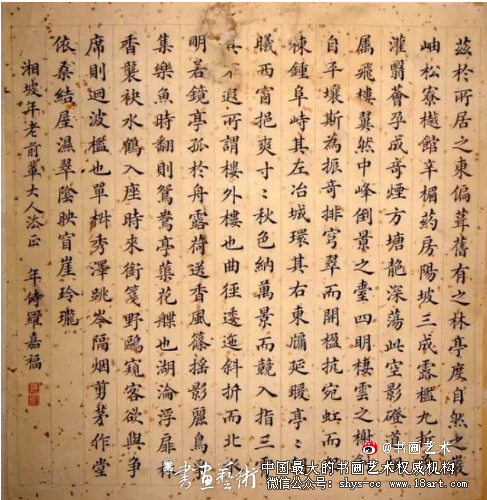 茲於所居之東偏葺舊有之林亭度自然之巖
岫松寮檖館辛楣葯房陽坡三成露檻九
灌翳薈孕成奇煙方塘靘深蕩此空影磴
属飛樓翼然中峰倒景之臺四明棲雲之榭
自平壤斯為振奇排穹翠而開楹抗宛虹而
棟鍾阜峙其左冶城環其右東牖延暖亭〻
曦西窗挹爽〻秋色納萬景而競入指三
不遐所謂樓外樓也曲徑逶迤斜折而北
明若鏡亭孤於舟露荷送香風篠搖影麗鳥
集樂魚時翻則鴛鴦亭蕖花艓也湖淪浮扉
香襲袂水鶴入座時來銜箋野鷗窺客欲與爭
席則迴波檻也單椒秀澤跳岑隔烟剪茅作堂
依桑結屋濕翠陰映窗崖玲瓏
湘坡年老前輩大人法正 年侍羅嘉福
@书画艺术
書画藝術
中国最大的书画艺术权威机构
微信公众号：shys-cc www.18art.com